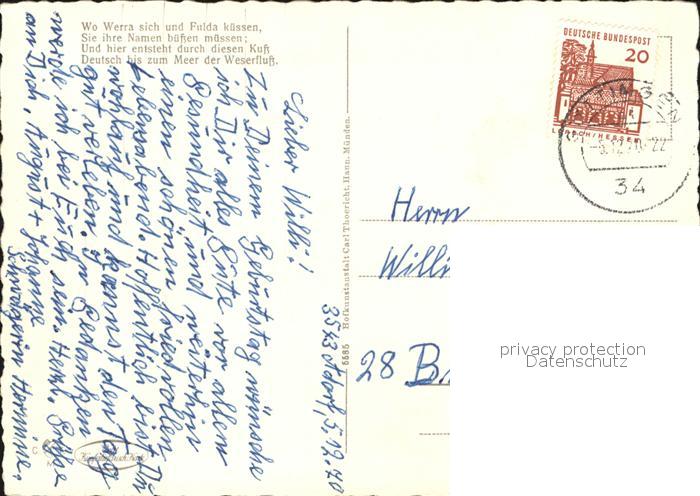 Wo Werra sich und Fulda küssen,
Sie ihre Namen büßen müssen;
Und hier entsteht durch diesen Kuß
Deutsch bis zum Meer der Weserfluß.
3543 Adorf, 5.12.70
Lieber Willi!
Zu Deinem Geburtstag wünsche
ich Dir alles Gute vor allem
Gesundheit und weiterhin
einen schönen friedvollen
Lebensabend. Hoffentlich bist Du
wohlauf und kannst den Tag
gut verleben. In Gedanken
werde ich bei Euch sein. Herzl. Grüße
an Dich, August + Johanne
Schwägerin Hermine.
5585 Hofkunstanstalt Carl Thoericht, Hann. Münden.
DEUTSCHE BUNDESPOST
20
LORSCH/HESSEN
-5.12.70-22
34
Herrn
Willi
28 B
privacy protection
Datenschutz